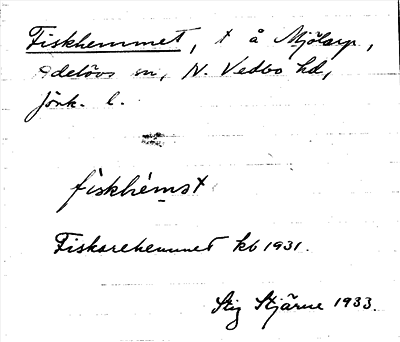 Fiskhemmet, t å Mjölarp,
Adelövs sn, N. Vedbo hd,
Jönk. l.
fiskhèmst
Fiskarehemmet kb 1931.
Stig Stjärne 1933.